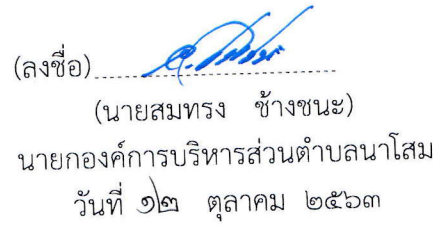 (ลงชื่อ)
(นายสมทรง ช้างชนะ)
นายกองค์การบริหารส่วนตำบลนาโสม
วันที่ ๑๒ ตุลาคม ๒๕๖๓